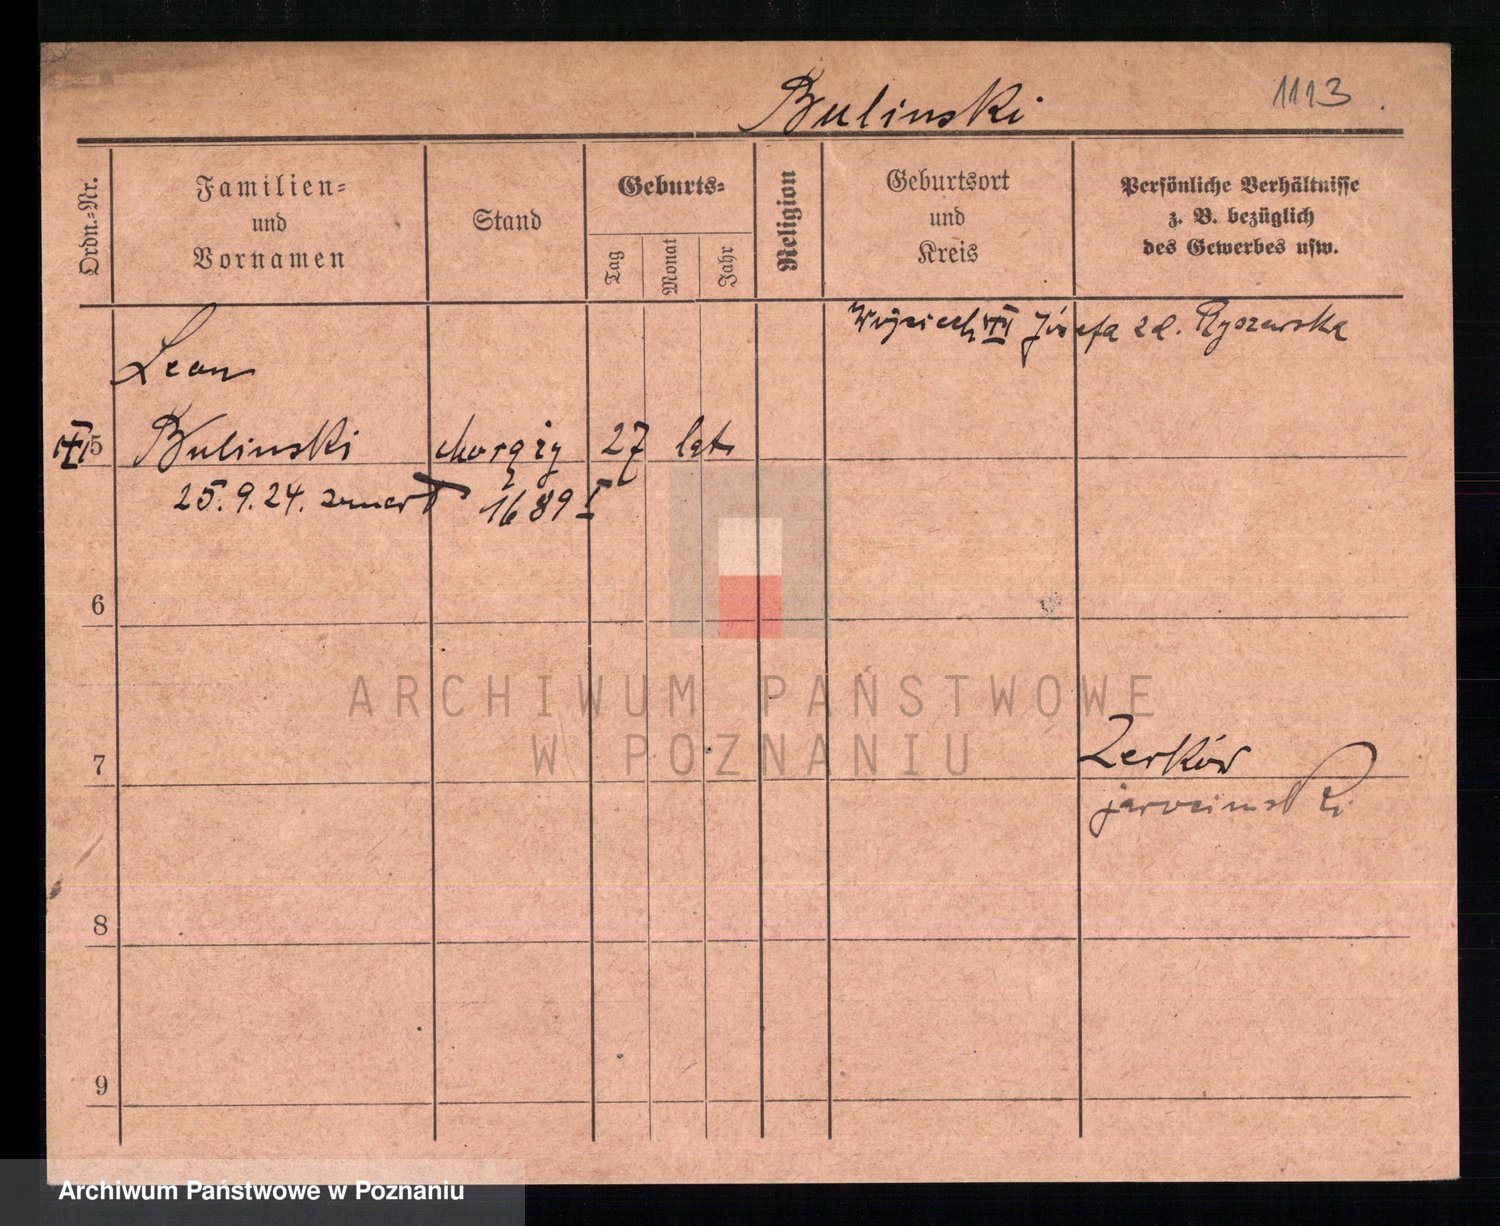 Bulinski 1113
Ordn.-Nr.
Familien-
und
Vornamen
Stand
Geburts-
Tag
Monat
Jahr
Religion
Geburtsort
und
Kreis
Persönliche Verhältnisse
z. B. bezüglich
des Gewerbes usw.
Wojciech Józefa zd. Ryszewska
Leon
5 Bulinski chorąży 27 lat
25.9.24. zmarł 1689 I
6
ARCHIWUM PAŃSTWOWE
W POZNANIU
7
Zerków
jarociński
8
9
Archiwum Państwowe w Poznaniu